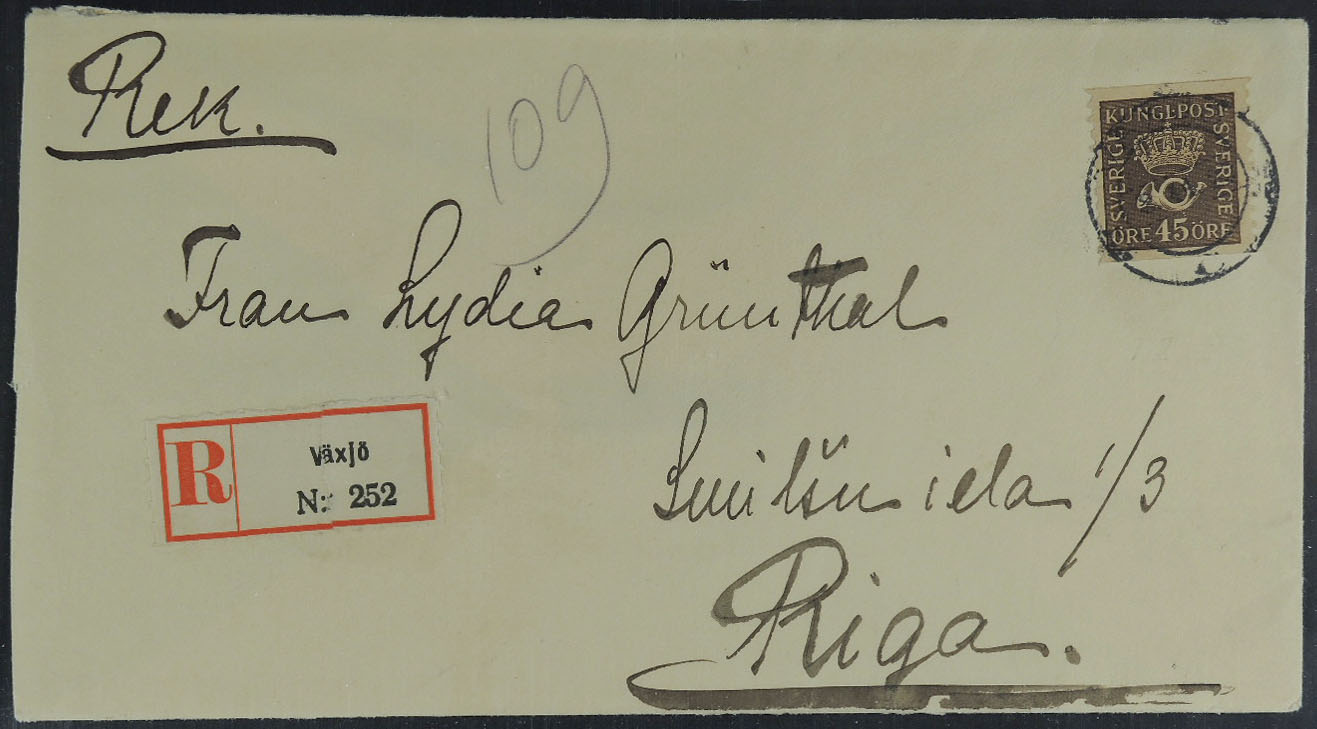 Rek.
109
KUNGL.POST
SVERIGE
SVERIGE
ÖRE 45 ÖRE
Frau Lydia Grünthal
R
Växjö
N:r 252
Smilšu iela 1/3
Riga.